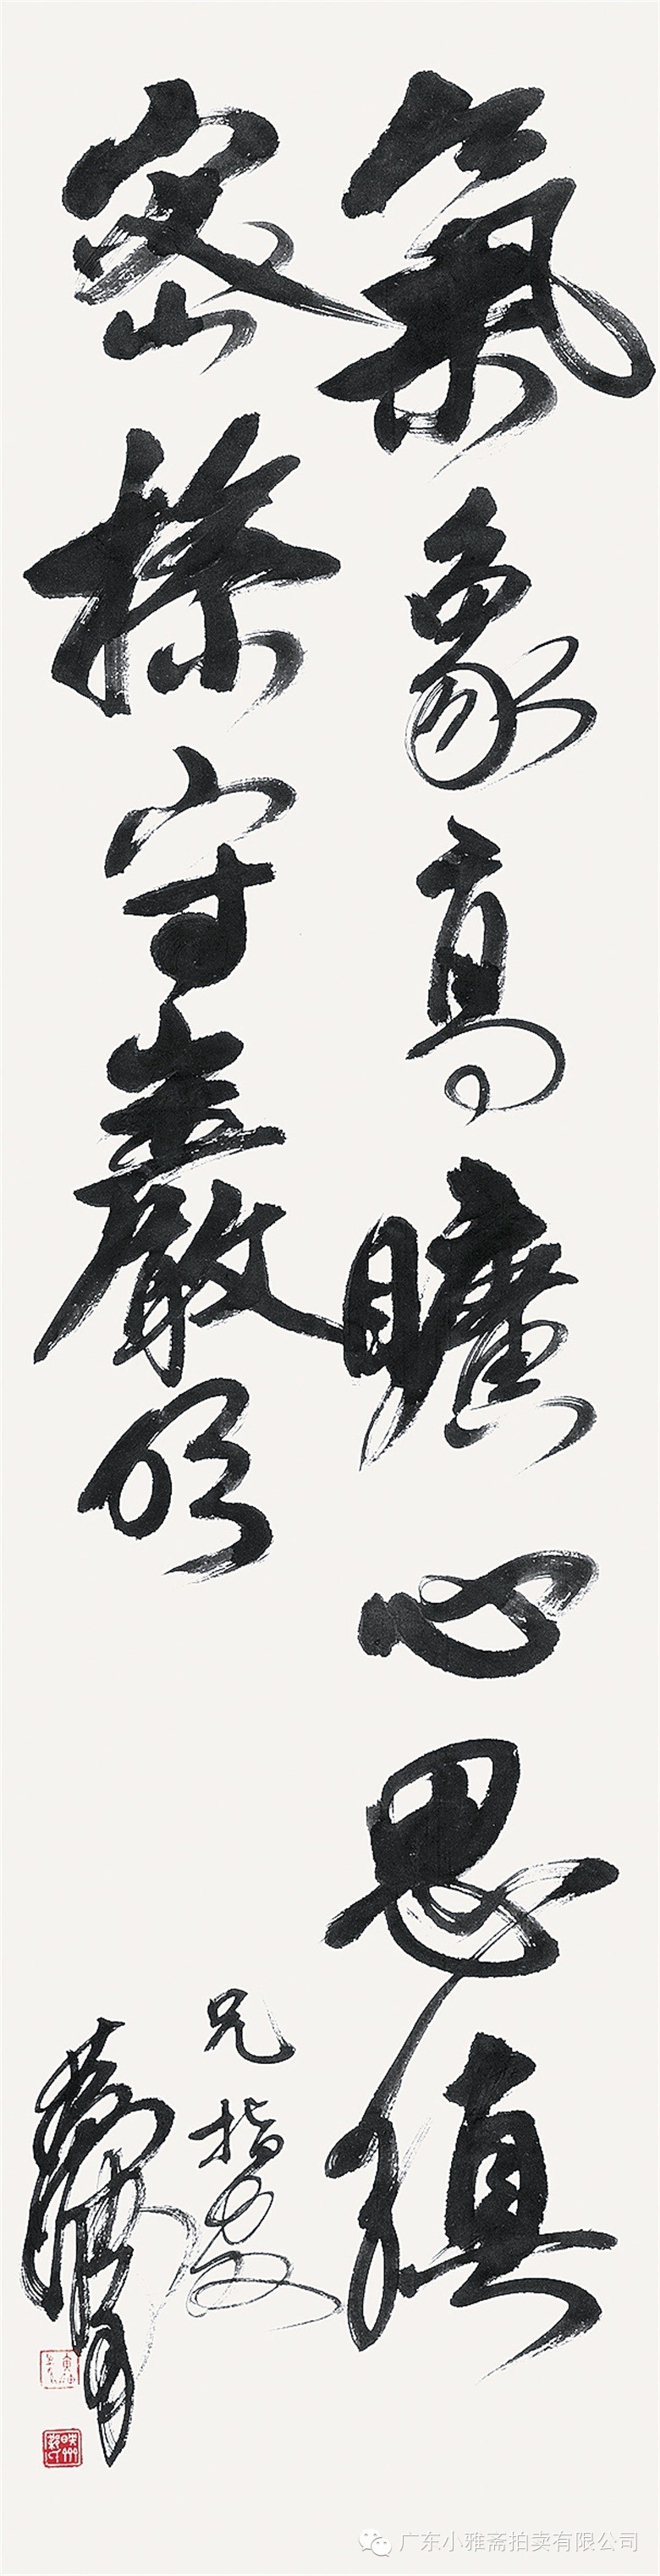 氣象高曠心思縝
密操守嚴明
兄指教
广东小雅斋拍卖有限公司